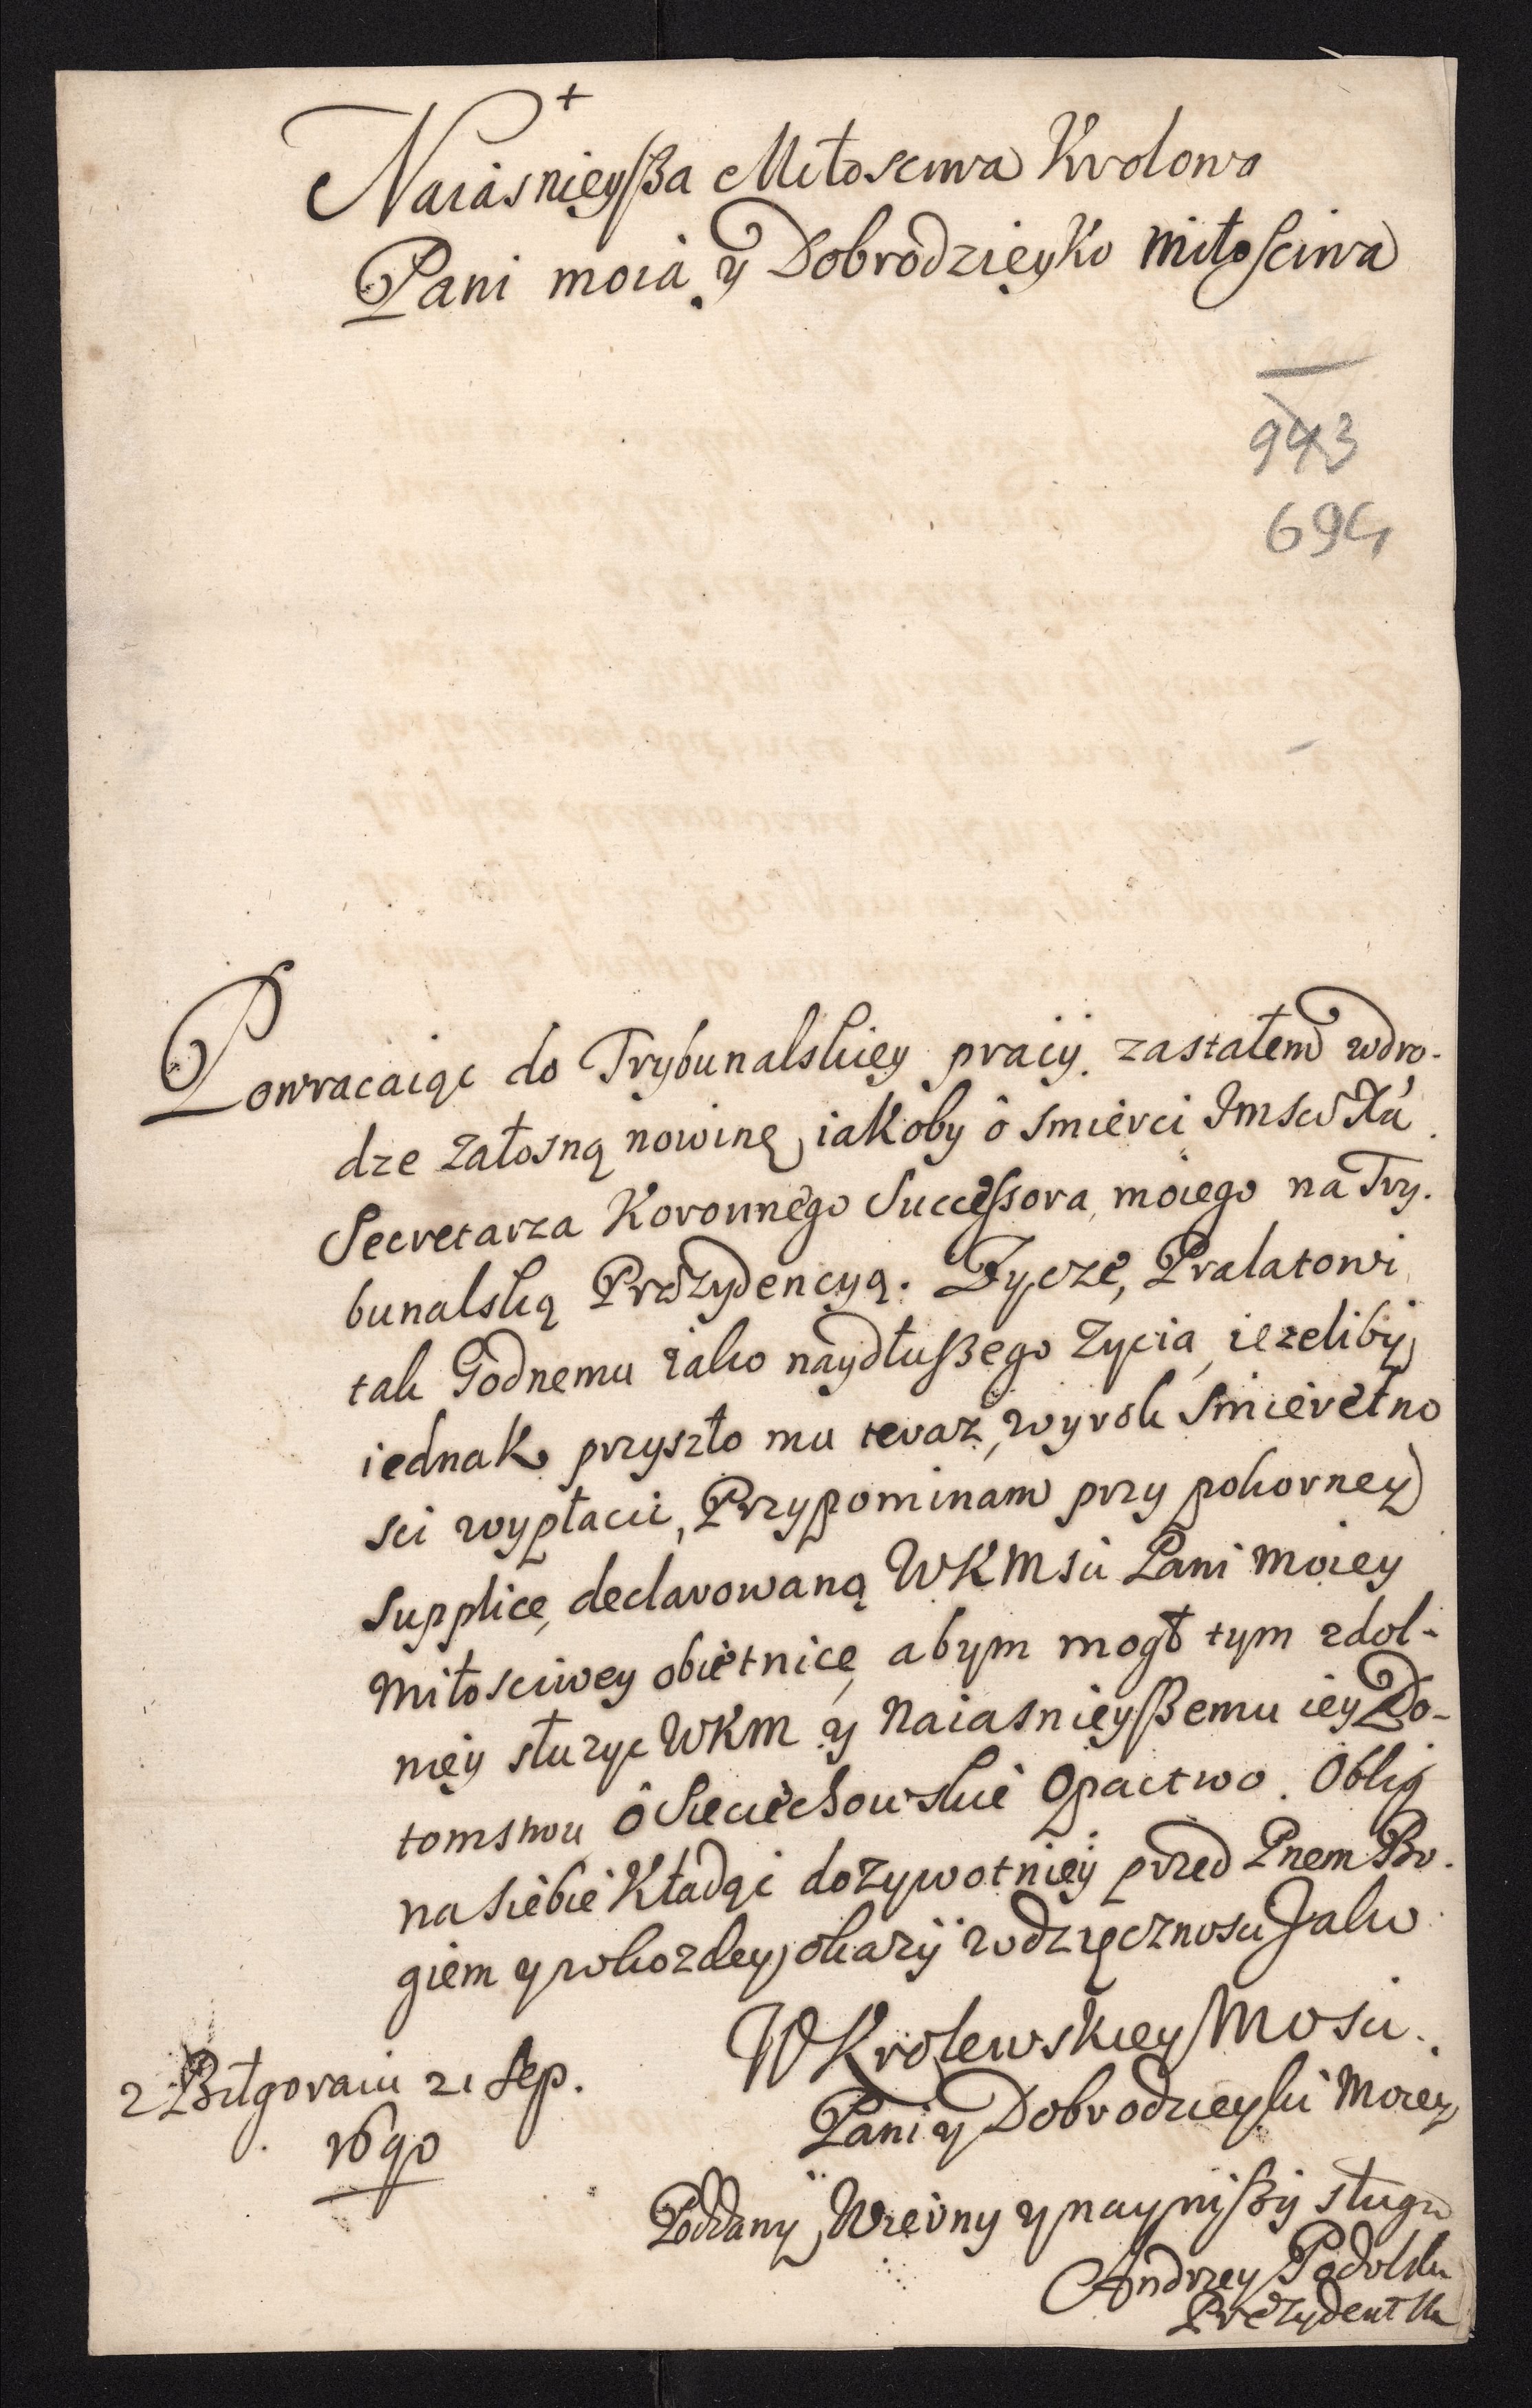 +
Naiasnieyßa Miłosciwa Krolowa
Pani moia y Dobrodzieyko miłosciwa
943
694
Powracaiąc do Trybunalskiey pracy zastałem wdro-
dze załosną nowinę, iakoby o smierci Jmsci Xa
Secretarza Koronnego Successora moiego na Try-
bunalską Prezydencyą. Zycze, Pralatowi
tak Godnemu iako naydłußego zycia, iezeliby
iednak przyszło mu teraz, wyrok smiertelno
sci wypłacic, Przypominam przy pokorney
supplice, declarowaną WKMsci Pani moiey
Miłosciwey obietnicę, abym mogł tym zdol-
niey słuzyc WKM y Naiasnieyßemu iey Do-
tomstwu o Sieciechowskie Opactwo. Oblig
na siebie Kładąc dozywotniey przed Pnem Bo-
giem y wkozdey okazyi wdzięcznosci Jako
WKrolewskiey Mosci
Pani y Dobrodzieyki Moiey
z Biłgoraiu 21 Sep.
1690
Poddany, Wierny y naynißy sługa
Andrzey Podolski
Prezydent